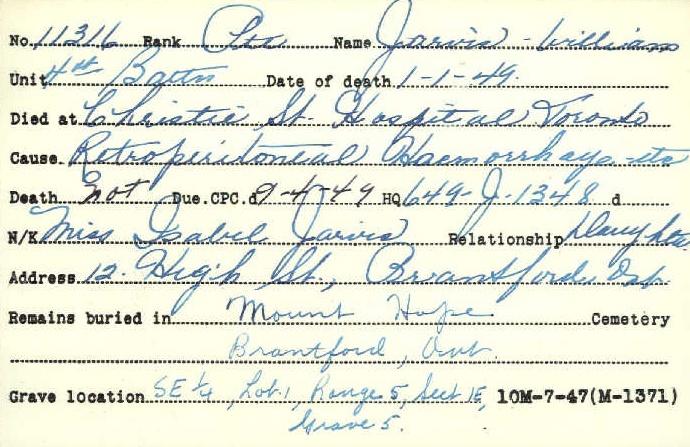 No. 11316 Rank Pte Name Jarvis - William
Unit 4th Battn Date of death 1-1-49.
Died at Christie St. Hospital Toronto
Cause Retroperitoneal Haemorrhage - etc
Death Not Due. CPC.d 9-4-49 HQ 649-J-1348 d
N/K Miss Isabel Jarvis Relationship Daughter
Address 12. High St., Brantford Ont.
Remains buried in Mount Hope Cemetery
Brantford, Ont.
Grave location SE 1/4, Lot 1, Range 5, Sect 15, 10M-7-47(M-1371)
Grave 5.